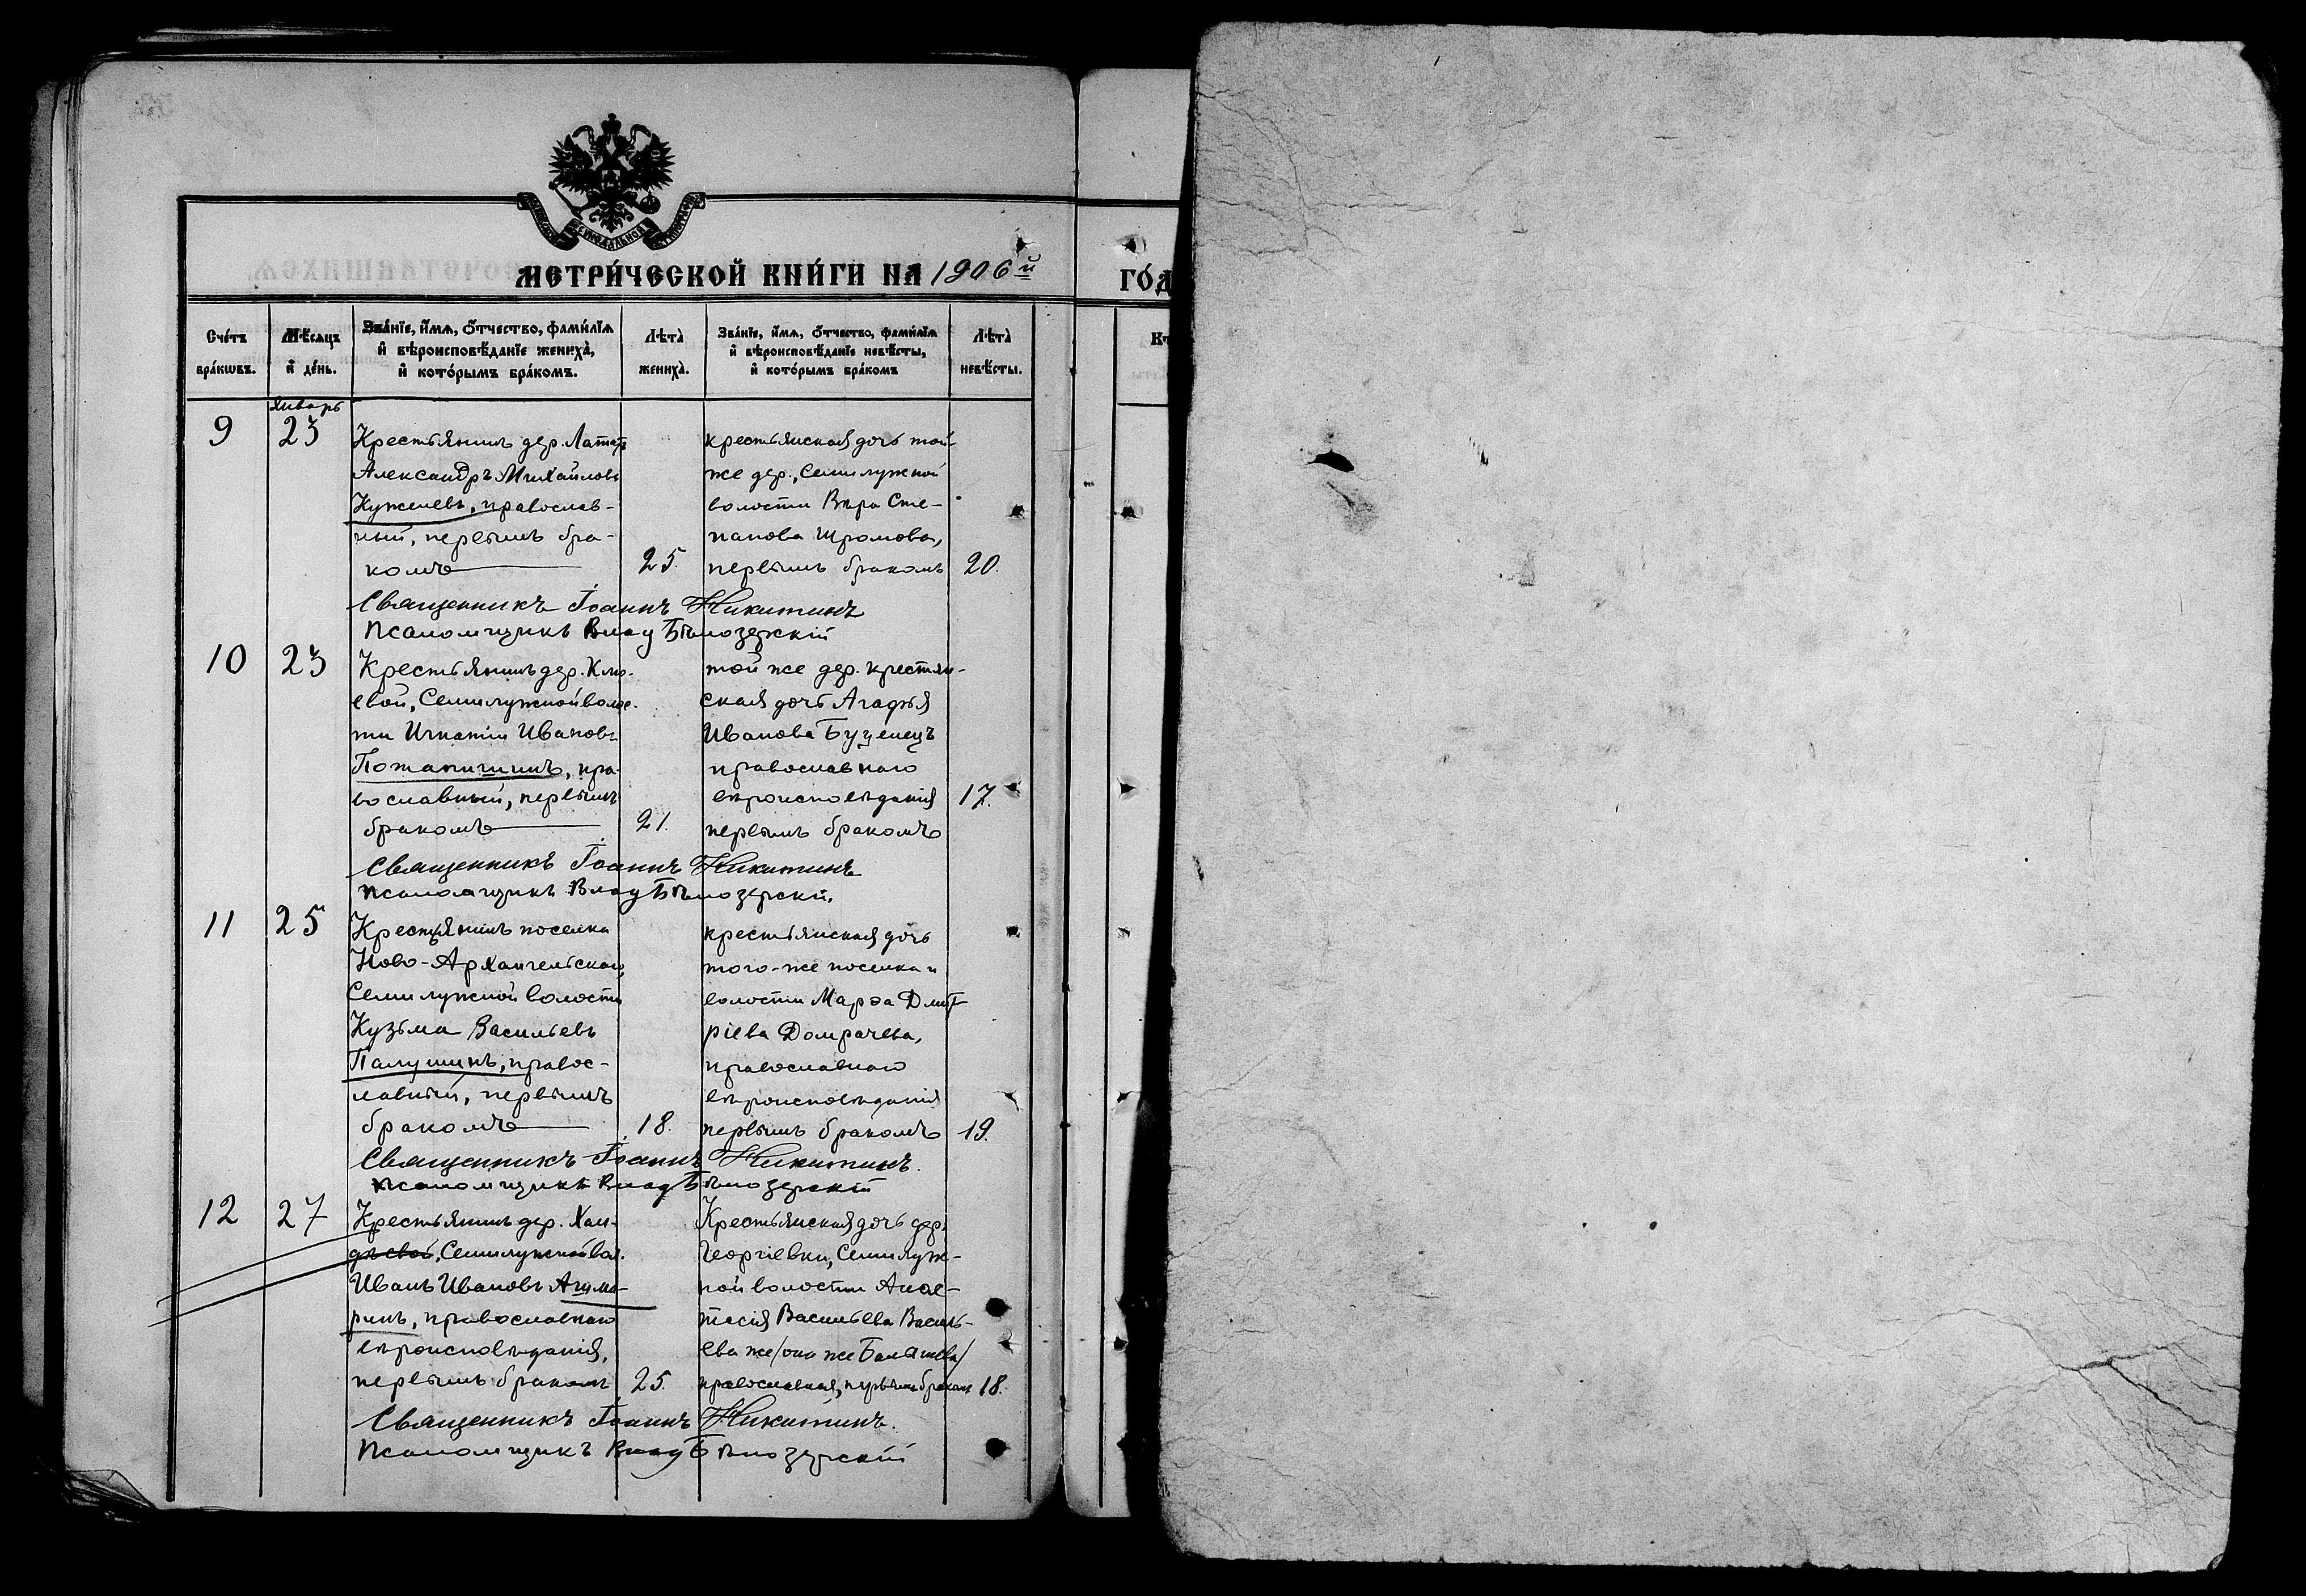 МЕТРИ́ЧЕСКОЙ КНИ́ГИ НА 1906й
ГО́Д
Сче́тъ бра́кωвъ.
Мѣ́сяцъ и де́нь.
Зва́нїе, и́мѧ, о́тчество, фами́лїѧ и вѣроисповѣ́данїе жениха̀, и кото́рымъ бра́комъ.
Лѣта̀ жениха̀.
Зва́нїе, и́мѧ, о́тчество, фами́лїѧ и вѣроисповѣ́данїе невѣ́сты, и кото́рымъ бра́комъ
Лѣта̀ невѣ́сты.
Январь
9
23
Крестьянинъ дер.
Александръ Михайловъ
Кужелевъ, православ-
ный, первымъ бра-
комъ
25.
крестьянская дочь той-
же дер., Семилужной
волости Вѣра Сте-
панова Шромова,
первымъ бракомъ
20.
Священникъ Іоаннъ Никитинъ
Псаломщикъ Влад Бѣлозерскій
10
23
Крестьянинъ дер. Клю-
евой, Семилужной волос-
ти Игнатій Ивановъ
Потанигинъ, пра-
вославный, первымъ
бракомъ
21.
той же дер. крестьян-
ская дочь Агафья
Иванова Буценецъ
православнаго
вѣроисповѣданія
первымъ бракомъ
17.
Священникъ Іоаннъ Никитинъ
Псаломщикъ Влад Бѣлозерскій.
11
25
Крестьянинъ поселка
Ново-Архангельскаго,
Семилужной волости
Кузьма Васильевъ
Палушинъ, правос-
лавный, первымъ
бракомъ
18.
крестьянская дочь
того-же поселка и
волости Марѳа Дмит-
ріева Домрачева,
православнаго
вѣроисповѣданія
первымъ бракомъ
19.
Священникъ Іоаннъ Никитинъ.
Псаломщикъ Влад Бѣлозерскій
12
27
Крестьянинъ дер. Хал-
дѣевой, Семилужной вол.
Иванъ Ивановъ
православнаго
вѣроисповѣданія,
первымъ бракомъ
25.
Крестьянская дочь дер.
Георгіевки, Семилуж-
ной волости Анас-
тасія Васильева Василь-
ева же /она же Балашева/
православная, первымъ бракомъ
18.
Священникъ Іоаннъ Никитинъ.
Псаломщикъ Влад Бѣлозерскій